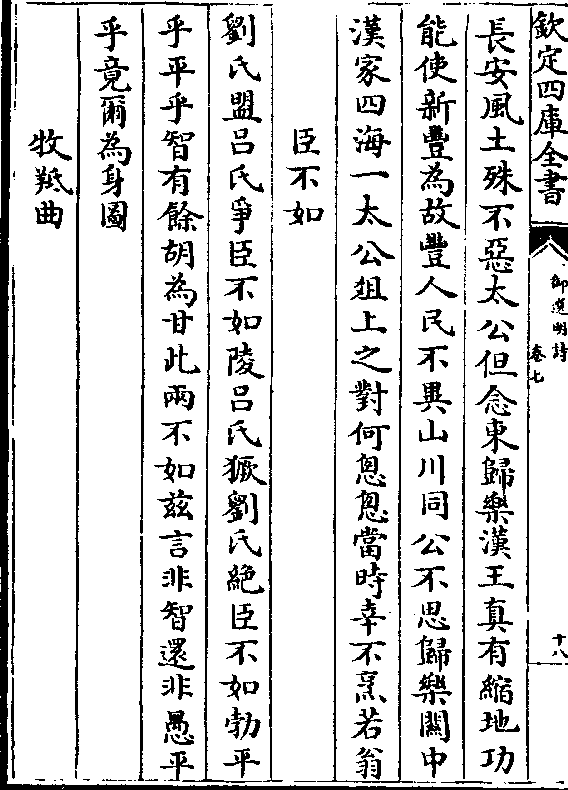 欽定四庫全書
御選明詩
卷七
十八
長安風土殊不惡太公但念東歸樂漢王真有縮地功
能使新豐為故豐人民不異山川同公不思歸樂關中
漢家四海一太公俎上之對何怱怱當時幸不烹若翁
臣不如
劉氏盟吕氏爭臣不如陵吕氏獗劉氏絶臣不如勃平
乎平乎智有餘胡為甘此兩不如兹言非智還非愚平
乎竟爾為身圖
牧羝曲